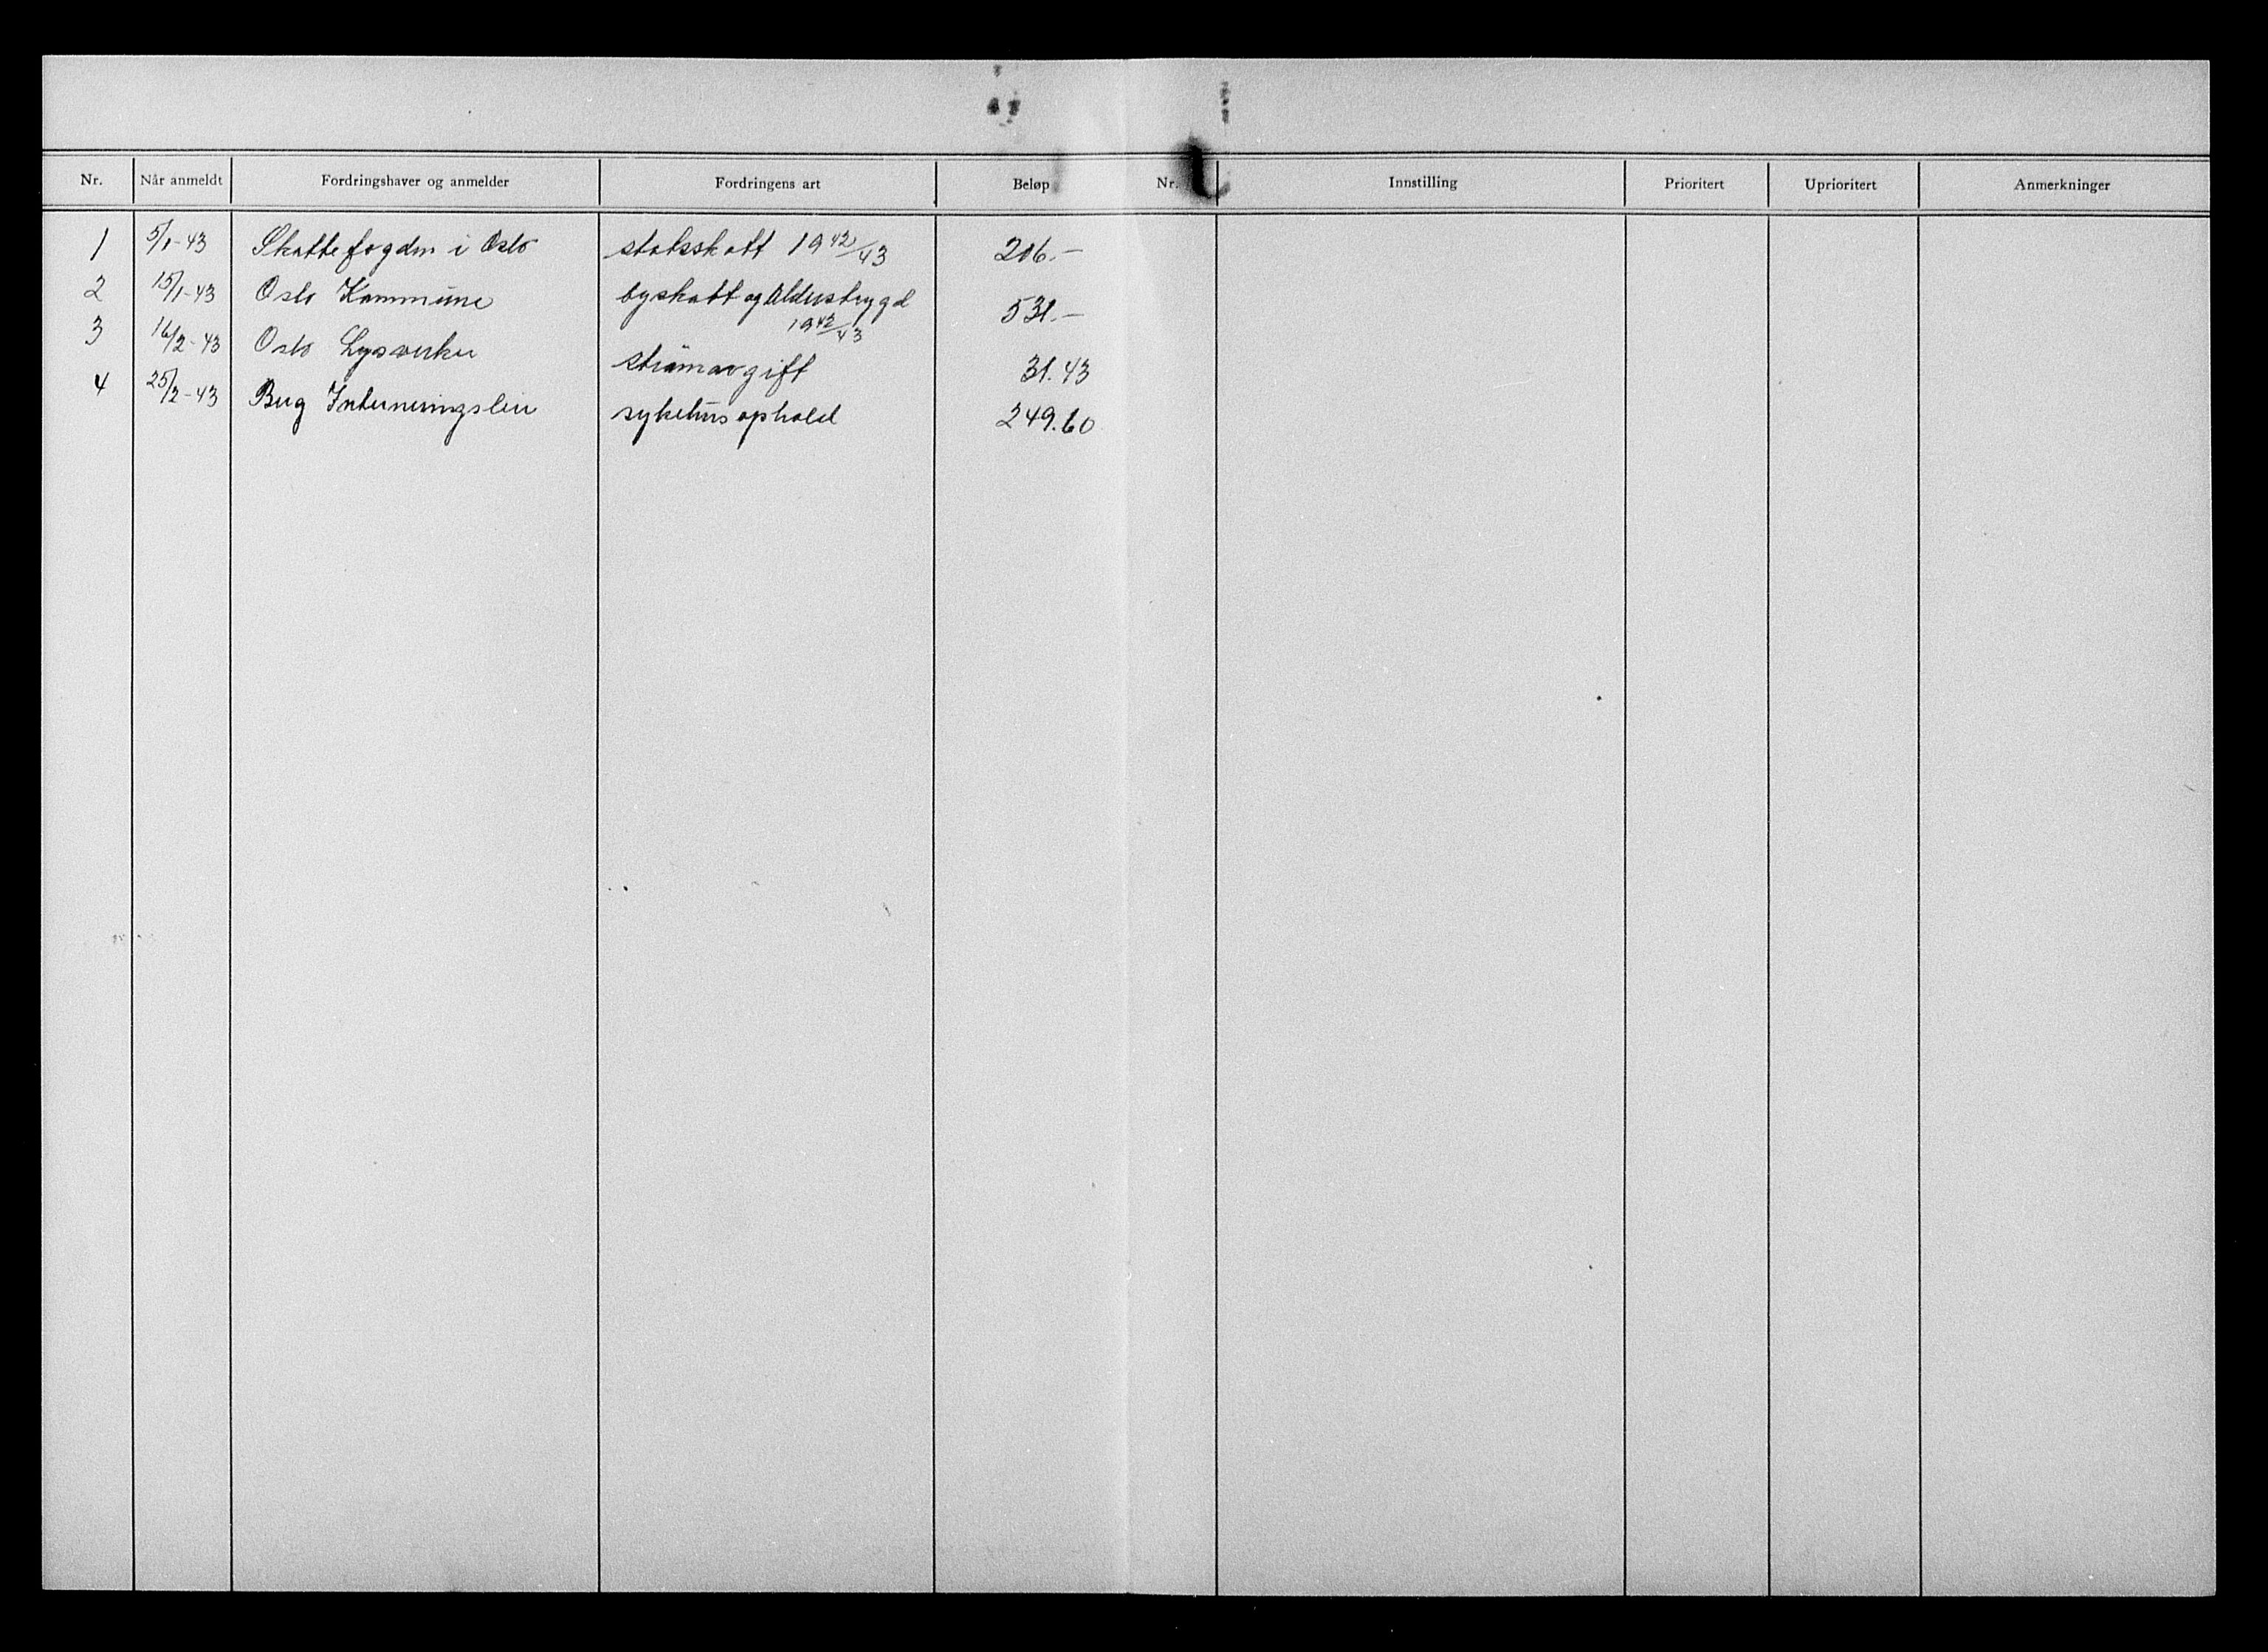 Nr. Når anmeldt Fordringshaver og anmelder Fordringens art Beløp Nr. Innstilling Prioritert Uprioritert Anmerkninger
1 5/1-43 Skattefogden i Oslo statsskatt 1942/43 206.-
2 15/1-43 Oslo Kommune byskatt og Alderstrygd 531.-
1942/43
3 16/2-43 Oslo Lysverker strømavgift 31.43
4 25/2-43 Berg Interneringsleir sykehusophold 249.60